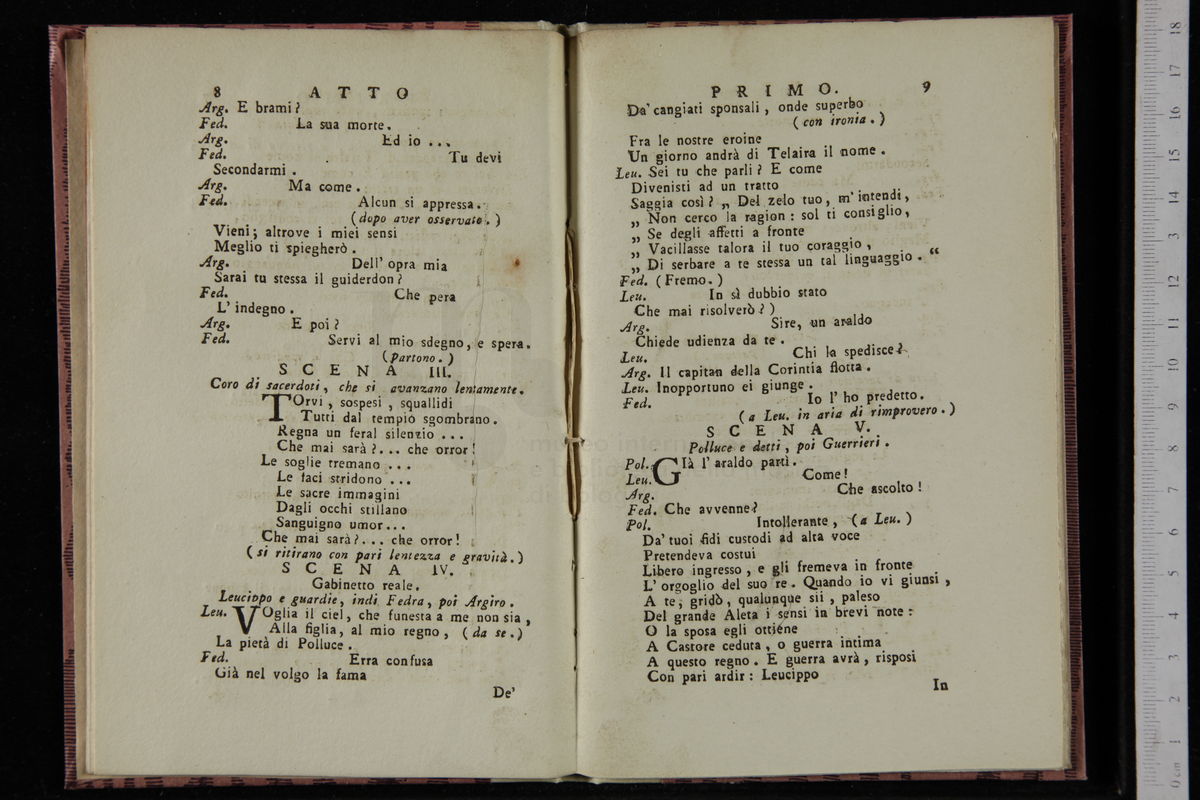 8 ATTO
Arg. E brami?
Fed. La sua morte.
Arg. Ed io ...
Fed. Tu devi
Secondarmi.
Arg. Ma come.
Fed. Alcun si appressa.
(dopo aver osservato.)
Vieni; altrove i miei sensi
Meglio ti spiegherò.
Arg. Dell' opra mia
Sarai tu stessa il guiderdon?
Fed. Che pera
L' indegno.
Arg. E poi?
Fed. Servi al mio sdegno, e spera.
(partono.)
SCENA III.
Coro di sacerdoti, che si avanzano lentamente.
TOrvi, sospesi, squallidi
Tutti dal tempio sgombrano.
Regna un feral silenzio ...
Che mai sarà?... che orror!
Le soglie tremano ...
Le faci stridono ...
Le sacre immagini
Dagli occhi stillano
Sanguigno umor...
Che mai sarà?... che orror!
(si ritirano con pari lentezza e gravità.)
SCENA IV.
Gabinetto reale.
Leucippo e guardie, indi Fedra, poi Argiro.
Leu. VOglia il ciel, che funesta a me non sia,
Alla figlia, al mio regno, (da se.)
La pietà di Polluce.
Fed. Erra confusa
Già nel volgo la fama
De'
PRIMO. 9
Da' cangiati sponsali, onde superbo
(con ironia.)
Fra le nostre eroine
Un giorno andrà di Telaira il nome.
Leu. Sei tu che parli? E come
Divenisti ad un tratto
Saggia così? „ Del zelo tuo, m' intendi,
„ Non cerco la ragion: sol ti consiglio,
„ Se degli affetti a fronte
„ Vacillasse talora il tuo coraggio,
„ Di serbare a te stessa un tal linguaggio. “
Fed. (Fremo.)
Leu. In sì dubbio stato
Che mai risolverò?)
Arg. Sire, un araldo
Chiede udienza da te.
Leu. Chi la spedisce?
Arg. Il capitan della Corintia flotta.
Leu. Inopportuno ei giunge.
Fed. Io l' ho predetto.
(a Leu. in aria di rimprovero.)
SCENA V.
Polluce e detti, poi Guerrieri.
Pol. GIà l' araldo partì.
Leu. Come!
Arg. Che ascolto!
Fed. Che avvenne?
Pol. Intollerante, (a Leu.)
Da' tuoi fidi custodi ad alta voce
Pretendeva costui
Libero ingresso, e gli fremeva in fronte
L' orgoglio del suo re. Quando io vi giunsi,
A te, gridò, qualunque sii, paleso
Del grande Aleta i sensi in brevi note:
O la sposa egli ottiene
A Castore ceduta, o guerra intima
A questo regno. E guerra avrà, risposi
Con pari ardir: Leucippo
In
0 cm 1 2 3 4 5 6 7 8 9 10 11 12 13 14 15 16 17 18